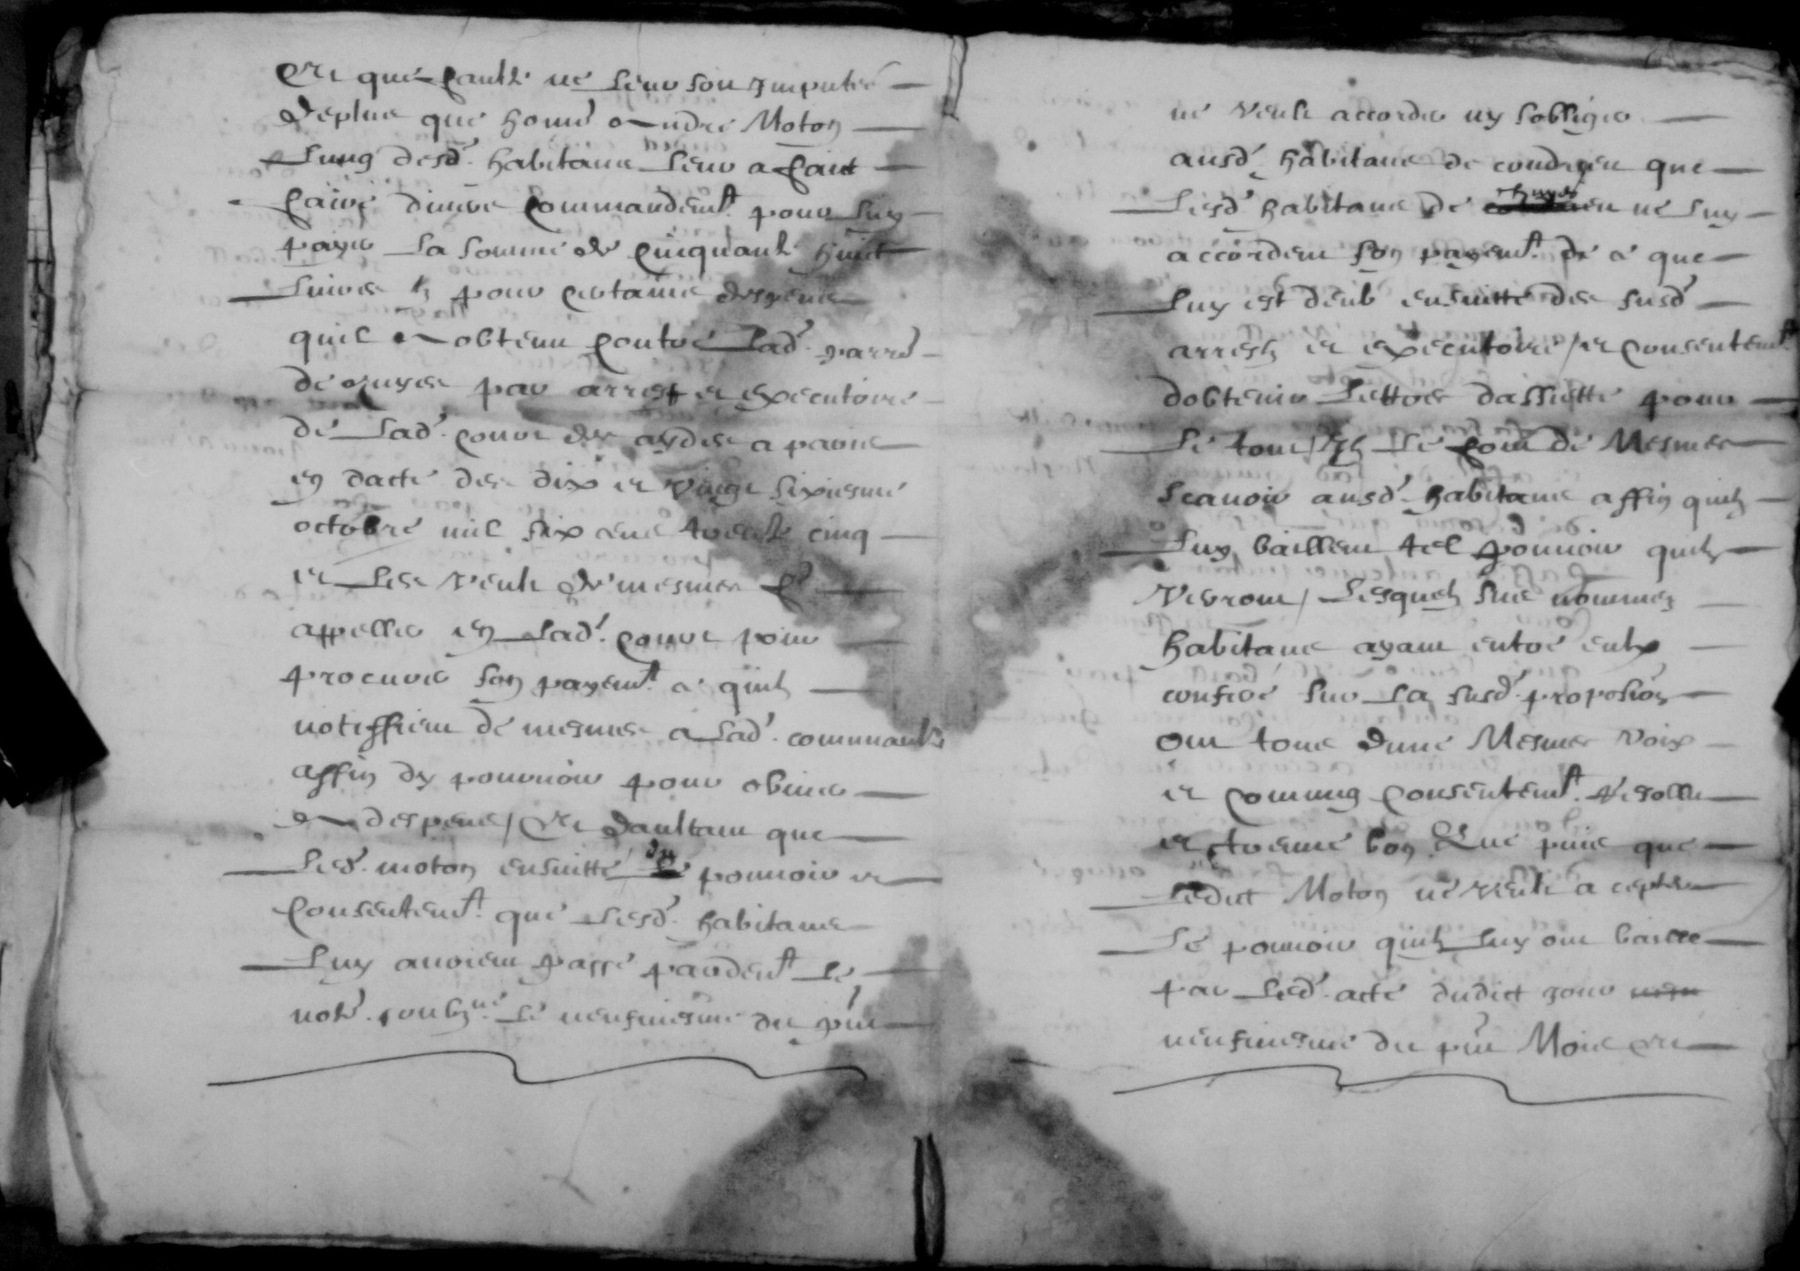 Et que faulte ne leur soit Imputée
deplus que honn͂ Andre Moton
Lung desd. habitans leur a faict
faire divers commandemt. pour luy
payer La somme de cinquante huict
livres pour certains despens
quil a obtenu contre Lad. parr͂
de par arrest et executoire
de Lad. cour des aydes a paris
en datte des dix et vingt sixiesme
octobre mil six cens trente cinq
et les veult de mesmes
appeller en Lad. cour pour
procurer son payemt. a quilz
notiffient de mesmes a Lad. communaulte
affin dy pourvoir pour obvier
a despens / Et daultant que
Led. moton ensuitte du pouvoir et
Consentemt. que Lesd. habitans
Luy avoient passé pardevt. Le
note. soubzne. Le neufviesme du pnt
ne veult accorder ny sobliger
ausd. habitans de condrieu que
Lesd. habitans de ne luy
accordent son payemt. de ce que
Luy est deub ensuitte des susd.
arrestz et executoire / et consentemt.
dobtenir Lettres dassiette pour
Le tout / Ilz Le font de Mesmes
scavoir ausd. habitans affin quilz
Luy baillent tel pouvoir quilz
Verront / Lesquelz sus nommez
habitans ayant entre eulx
conferé sur La susd. proposion
ont tous dune Mesmes voix
et commung consentemt. resollu
et treuvé bon Que puis que
Ledict Moton ne veult accepter
Le pouvoir quilz Luy ont baille
par Led. acte dudict jour
neufviesme du pnt Mois et